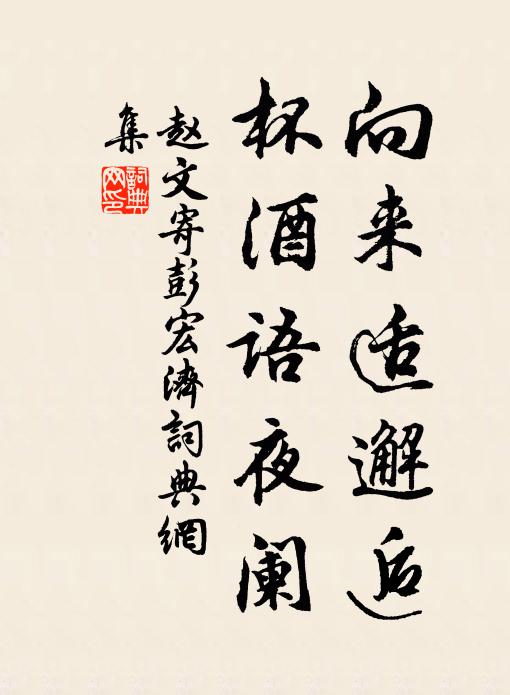 向来适邂逅
杯酒语夜阑
赵文寄彭宏濟詞典網
集
詞典
网印